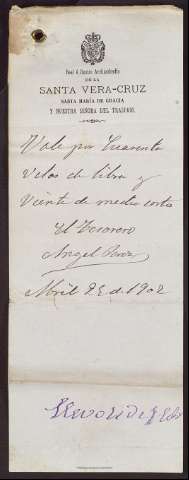 Real é Ilustre Archicofradía
DE LA
SANTA VERA-CRUZ
SANTA MARÍA DE GRACIA
Y NUESTRA SEÑORA DEL TRASPASO.
Vale por Cuarenta
Velas de libra y
Veinte de media
El Tesorero
Angel
Abril 25 de 1902